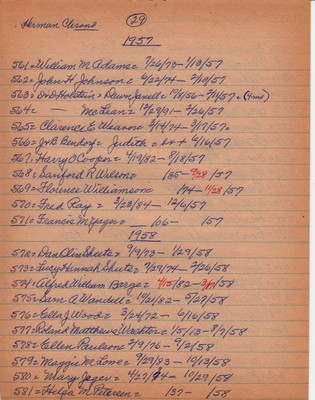 Herman Clerons (29)
1957
561 = William M. Adams = 7/26/73 - 1/13/57
562 = John H. Johnson = 4/22/74 - 2/10/57
563 = D+D Holstein = Dawn Janell = 10/5/56 - 2/4/57 = (4 mo)
564 = McLean = 12/29/91 - 2/26/57
565 = Clarence E. Weaver = 2/14/74 - 3/17/57 =
566 = J+B Bendorf = Judith = D++ 4/16/57
567 = Harry O Cooper = 4/19/82 - 8/18/57
568 = Sanford R Wilson = 185 - 9/28/57
569 = Florence Williamson = 174 - 11/28/57
570 = Fred Ray = 2/23/84 - 12/6/57
571 = Francis M. Yager = 06 - 157
1958
572 = Dan Clin Sheets = 9/9/73 - 1/29/58
573 = Lucy Hannah Sheets = 7/27/74 - 2/26/58
574 = Alfred William Berge = 4/15/82 - 3/7/58
575 = Sam A Wandell = 10/21/82 - 5/27/58
576 = Ella J Wood = 3/24/72 - 6/16/58
577 = Roland Matthews Wachter = 1/5/13 - 8/7/58
578 = Ellen Paulson = 3/9/76 - 9/2/58
579 = Maggie M. Lowe = 9/29/83 - 10/13/58
580 = Mary Jager = 4/27/74 - 10/29/58
581 = Helga M. Peterson = 137 - 158